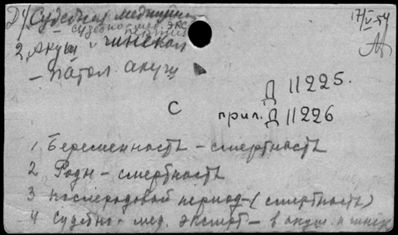 1) Судебная медицина
17/V-54
– судебно-мед. экс
2. Акуш и гинекол
– патол. акуш
Д 11225.
С
прил. Д 11226
1. Беременность – смертность
2. Роды – смертность
3 послеродовой период – (смертность)
4 Судебно-мед. эксперт – в акуш. и гинек